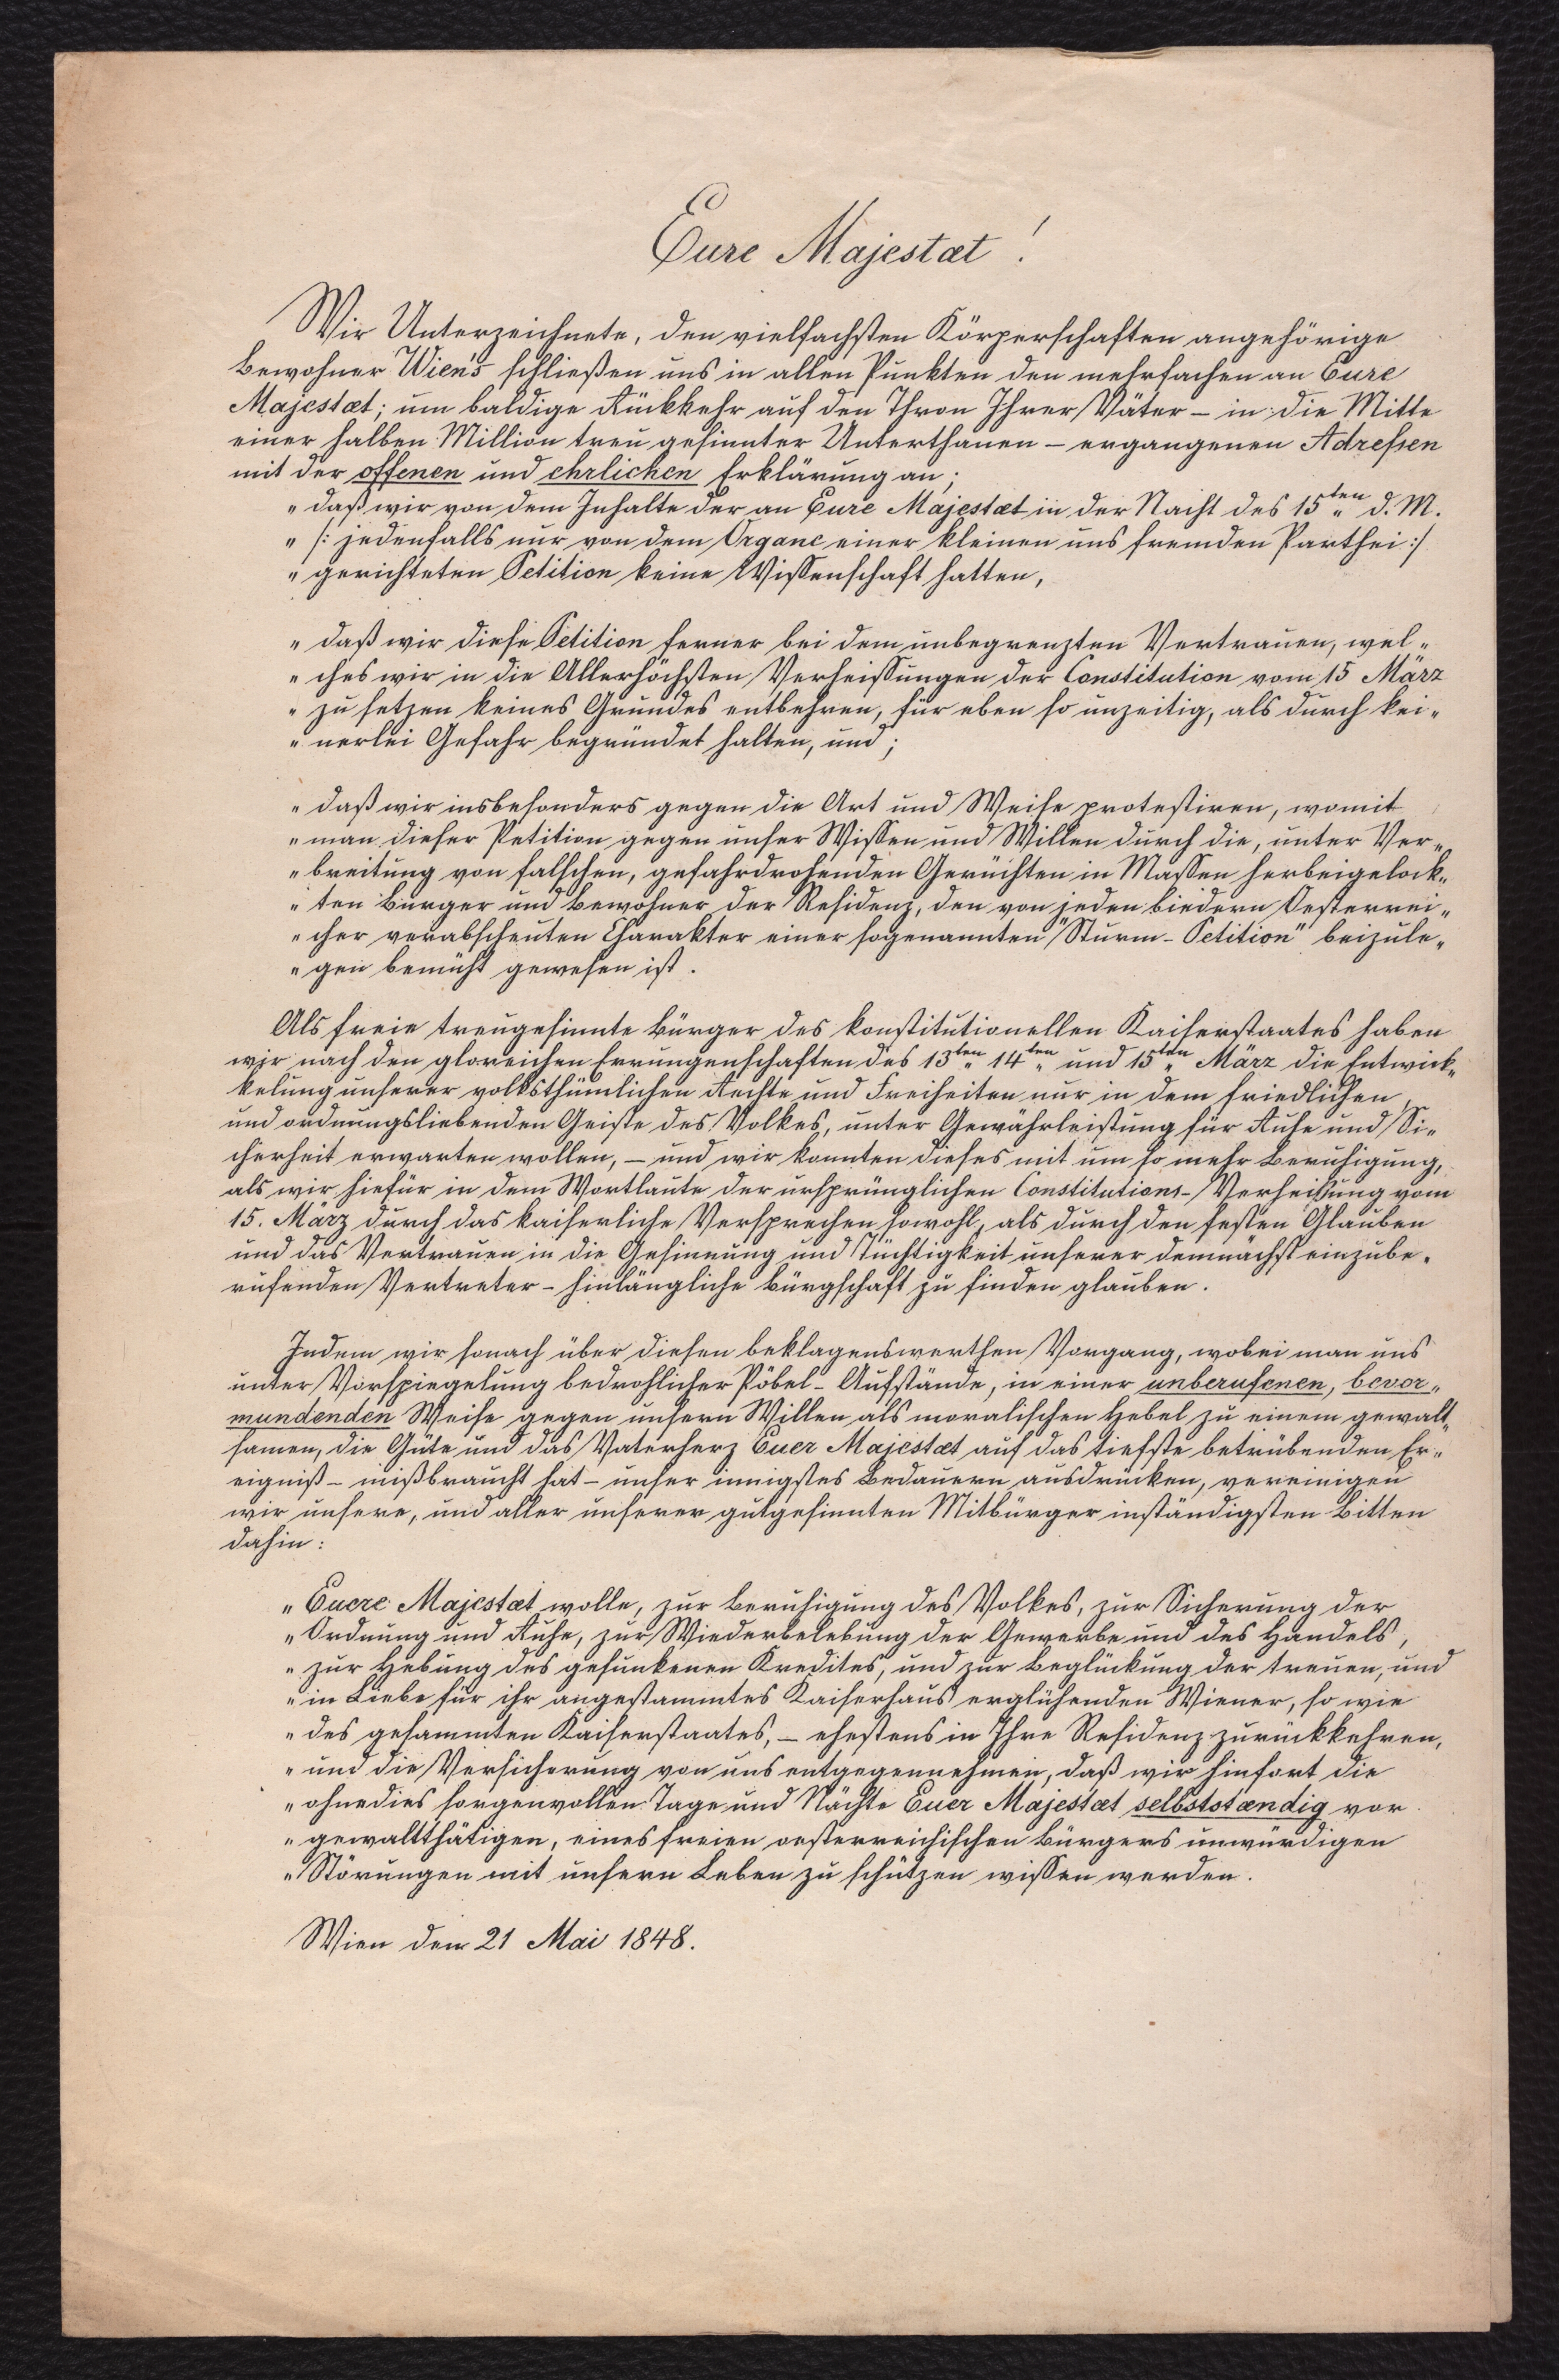 Eure Majestæt!
Wir Unterzeichnete, den vielfachsten Körperschaften angehörige
Bewohner Wien's schließen uns in allen Punkten den mehrfachen an Eure
Majestæt; um baldige Rükkkehr auf den Thron Ihrer Väter – in die Mitte
einer halben Million treu gesinnter Unterthanen – ergangenen Adreßen
mit der offenen und ehrlichen Erklärung an;
„ daß wir von dem Inhalte der an Eure Majestæt in der Nacht des 15ten d. M.
„ /: jedenfalls nur von dem Organe einer kleinen uns fremden Parthei :/
„ gerichteten Petition keine Wissenschaft hatten,
„ daß wir diese Petition ferner bei dem unbegrenzten Vertrauen, wel„
„ ches wir in die Allerhöchsten Verheissungen der Constitution vom 15 März
„ zu setzen keines Grundes entbehren, für eben so unzeitig, als durch kei„
„ nerlei Gefahr begründet halten, und;
„ daß wir insbesonders gegen die Art und Weise protestiren, womit
„ man dieser Petition gegen unser Wissen und Willen durch die, unter Ver„
„ breitung von falschen, gefahrdrohenden Gerüchten in Massen herbeigelock„
„ ten Bürger und Bewohner der Residenz, den von jeden biedern Oesterrei„
„ cher verabscheuten Charakter einer sogenannten "Sturm-Petition" beizule„
„ gen bemüht gewesen ist.
Als freie treugesinnte Bürger des konstitutionellen Kaiserstaates haben
wir nach den gloreichen Errungenschaften des 13ten 14ten und 15ten März die Entwick„
kelung unserer volksthümlichen Rechte und Freiheiten nur in dem friedlichen,
und ordnungsliebenden Geiste des Volkes, unter Gewährleistung für Ruhe und Si„
cherheit erwarten wollen, – und wir konnten dieses mit um so mehr Beruhigung,
als wir hiefür in dem Wortlaute der ursprünglichen Constitutions-Verheißung vom
15. März durch das kaiserliche Versprechen sowohl, als durch den festen Glauben
und das Vertrauen in die Gesinnung und Tüchtigkeit unserer demnächst einzube„
rufenden Vertreter – hinlängliche Bürgschaft zu finden glauben.
Indem wir sonach über diesen beklagenswerthen Vorgang, wobei man uns
unter Vorspiegelung bedrohlicher Pöbel-Aufstände, in einer unberufenen, bevor„
mundenden Weise gegen unsern Willen als moralischen Hebel zu einem gewalt„
samen, die Güte und das Vaterherz Euer Majestæt auf das tiefste betrübenden Er„
eigniß – mißbraucht hat – unser innigstes Bedauern ausdrücken, vereinigen
wir unsere, und aller unserer gutgesinnten Mitbürger inständigsten Bitten
dahin:
„ Euere Majestæt wolle, zur Beruhigung des Volkes, zur Sicherung der
„ Ordnung und Ruhe, zur Wiederbelebung der Gewerbe und des Handels,
„ zur Hebung des gesunkenen Kredites, und zur Beglückung der treuen, und
„ in Liebe für ihr angestammtes Kaiserhaus erglühenden Wiener, so wie
„ des gesammten Kaiserstaates, – ehestens in Ihre Residenz zurükkkehren,
„ und die Versicherung von uns entgegennehmen, daß wir hinfort die
„ ohnedies sorgenvollen Tage und Nächte Euer Majestæt selbstständig vor
„ gewaltthätigen, eines freien oesterreichischen Bürgers unwürdigen
„ Störungen mit unsern Leben zu schützen wissen werden.
Wien den 21 Mai 1848.